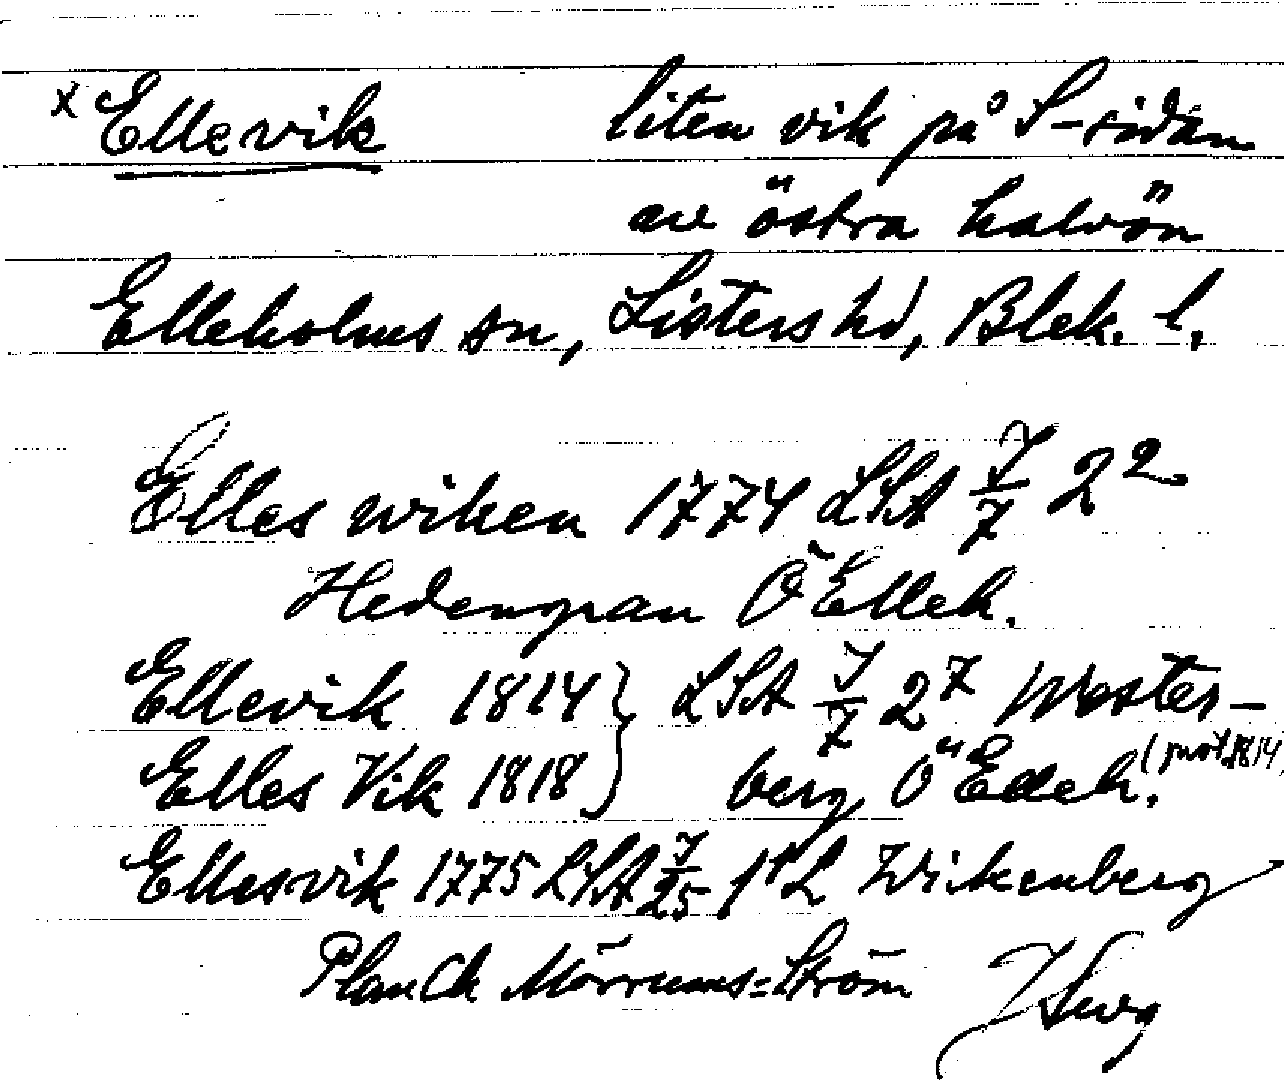 x Ellevik liten vik på S-sidan
av östra halvön
Elleholms sn, Listers hd, Blek. l.
Elles wiken 1774 LSA J/7 2²
Hedengran Ö Elleh.
Ellevik 1814 } LSA J/7 2⁷ Wester-
Elles Vik 1818 } berg, Ö Elleh. (prot. 1814)
Ellesvik 1775 LSA J/25 Wikenberg
Planch Mörrums=Ström